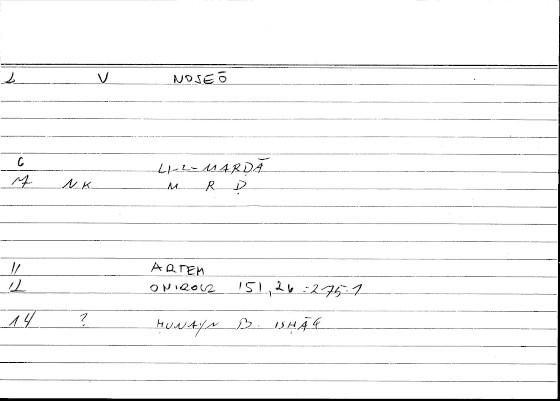 1 V NOSEŌ
6 LI-L-MARḌĀ
7 NK M R Ḍ
11 ARTEM
12 ONIROCR 151,26 = 275.1
14 ? ḤUNAYN B. ISḤĀQ